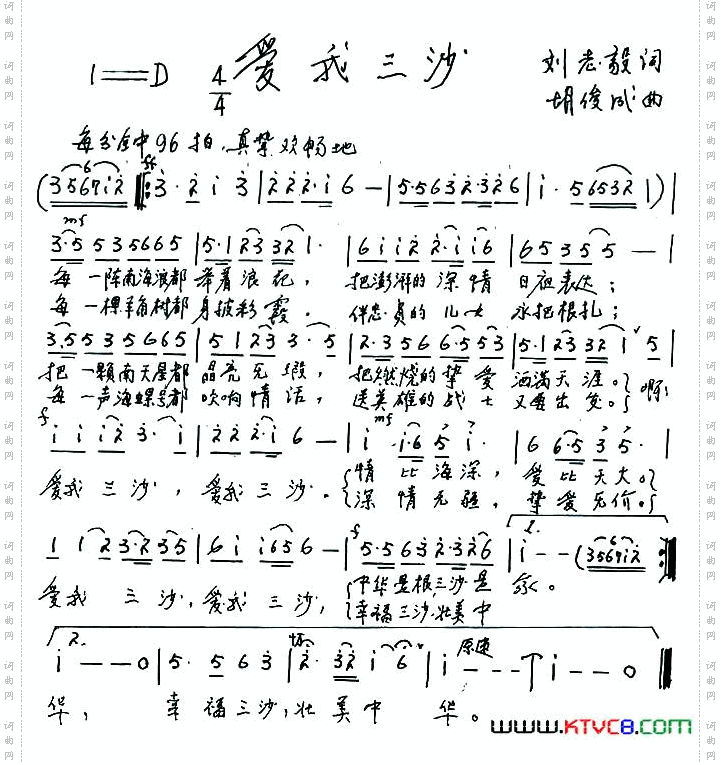 爱我三沙
1=D 4/4
刘志毅词
胡俊成曲
每分钟96拍 真挚欢畅地
(3567i2 ‖: 3·2 i 3 | 2 2 2·i 6 - | 5·5 6 3 2·3 2 6 | i· 5 6532 | 1) |
mf
3·5 5 3 5665 | 5·1 23 32 1· | 6 i i 2 2·i i6 | 6 5 3 5 5 - |
每一阵南海浪都举着浪花, 把澎湃的深情 日夜表达;
每一棵羊角树都身披彩霞, 伴忠贞的儿女 永把根扎;
3·5 5 3 5 6 6 5 | 5 1 2 3 3· 5 | 2·3 5 6 6·5 5 3 | 5·1 23 32 1 5 |
把一颗南天星都晶亮无瑕, 把燃烧的挚爱洒满天涯。啊!
每一声海螺号都吹响情话, 送英雄的战士又要出发。
f mf
i i i2 3· i | 2 2 2·i 6 - | i i·6 5 i· | 6 6·5 3 5· |
爱我三沙, 爱我三沙。 情比海深, 爱比天大。
深情无疆, 挚爱无价。
1 1 2 3·2 35 | 6 i i65 6 - | 5·5 6 3 2·3 2 6 | i - - (3567i2 :‖
f 1.
爱我三沙, 爱我三沙, 中华是根三沙是家。
幸福三沙壮美中
2.
i - - 0 | 5· 5 6 3 | 2· 32 i 6 | i - - - | i - - 0 ‖
原速
华, 幸福三沙, 壮美中华。
www.KTVC8.com
词曲网